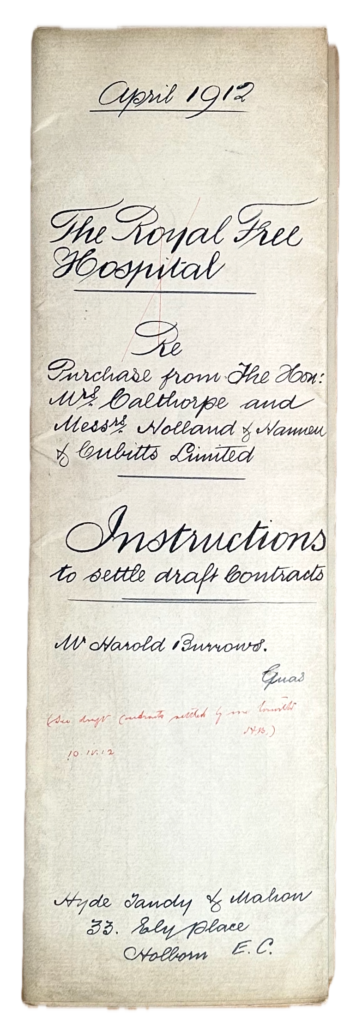 April 1912
The Royal Free
Hospital
Re
Purchase from The Hon:
Mrs. Calthorpe and
Messrs. Holland & Hannen
& Cubitts Limited
Instructions
to settle draft Contracts
Mr Harold Burrows.
Gnas
(See draft Contracts settled by me
H.B.)
Hyde Tandy & Mahon
33. Ely Place
Holborn E.C.